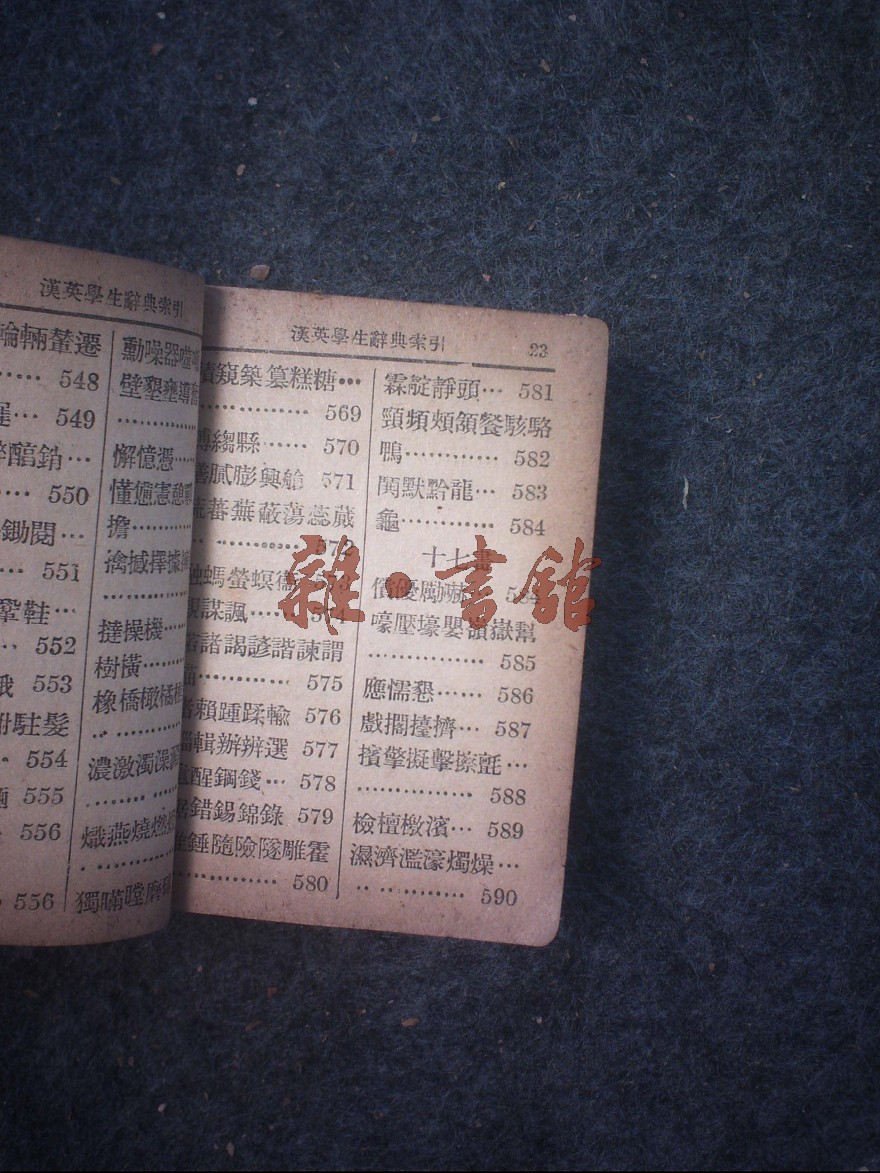 漢英學生辭典索引
輛輦遷
548
549
醕銷…
550
鋤閱…
551
鞏鞋…
552
553
駐髮
554
555
556
556
勳噪器
壁墾壅
懈憶憑
懂憊憲憩
擔
擒撼擇據
撻操機
樹橫
橡橋橄橘
濃激濁澡
熾燕燒燃
獨瞞瞠磨
漢英學生辭典索引 23
窺築篡糕糖…
569
縐縣…… 570
膩膨興艙 571
蕃蕪蔽蕩蕊蕆
572
螞螢螟衞 573
謀諷…… 574
諸謁諺諧諫謂
575
賴踵蹂輸 576
輯辦辨選 577
醒鋼錢… 578
錯錫錦錄 579
錘隨險隧雕霍
580
霖靛靜頭… 581
頸頻頰頷餐駭駱
鴨………… 582
閧默黔龍… 583
龜………… 584
十七畫
償優勵嚇
嚎壓壕嬰嶺嶽幫
585
應懦懇…… 586
戲擱擡擠… 587
擯擎擬擊擦氈…
588
檢檀檄濱… 589
濕濟濫濠燭燥…
590
雜·書館